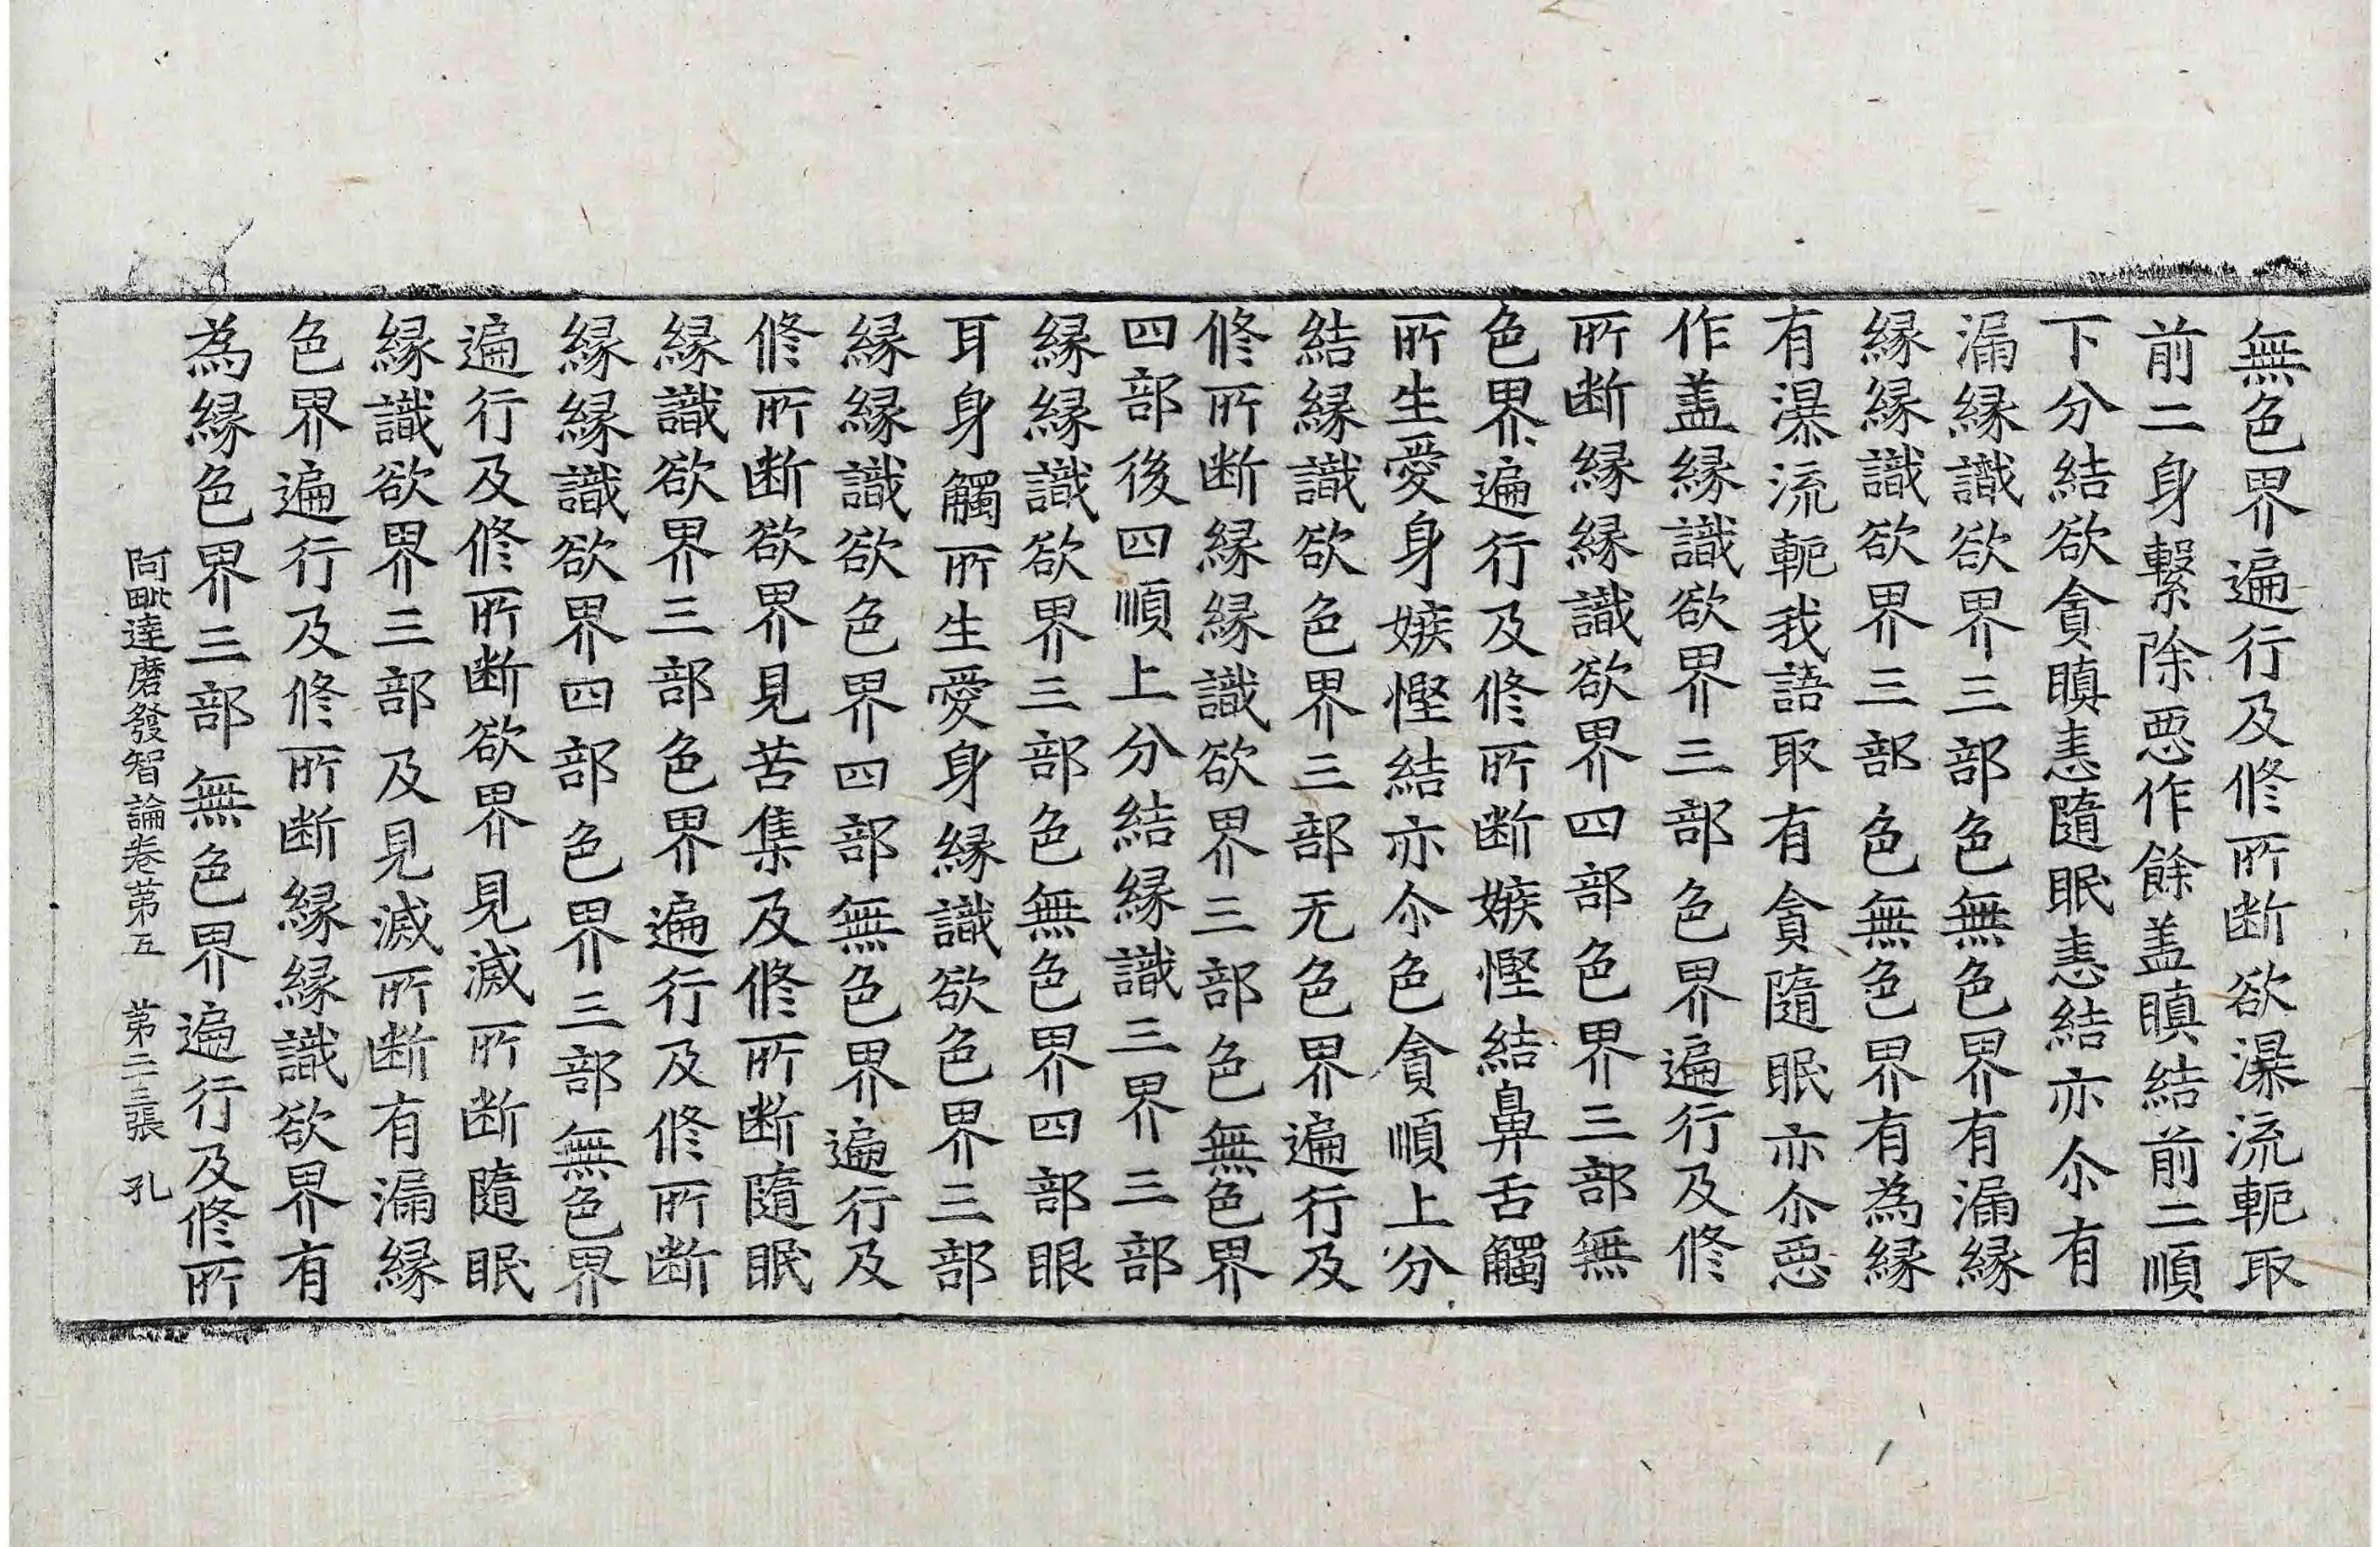 無色界遍行及修所断欲瀑流軛取
前二身繫除惡作餘盖瞋結前二順
下分結欲貪瞋恚隨眠恚結亦尒有
漏縁識欲界三部色無色界有漏縁
縁縁識欲界三部色無色界有為縁
有瀑流軛我語取有貪隨眠亦尒惡
作盖縁識欲界三部色界遍行及修
所断縁縁識欲界四部色界三部無
色界遍行及修所断嫉慳結鼻舌觸
所生愛身嫉慳結亦尒色貪順上分
結縁識欲色界三部无色界遍行及
修所断縁縁識欲界三部色無色界
四部後四順上分結縁識三界三部
縁縁識欲界三部色無色界四部眼
耳身觸所生愛身縁識欲色界三部
縁縁識欲色界四部無色界遍行及
修所断欲界見苦集及修所断隨眠
縁識欲界三部色界遍行及修所断
縁縁識欲界四部色界三部無色界
遍行及修所断欲界見滅所断隨眠
縁識欲界三部及見滅所断有漏縁
色界遍行及修所断縁縁識欲界有
為縁色界三部無色界遍行及修所
阿毗達磨發智論卷第五 第二三張 孔